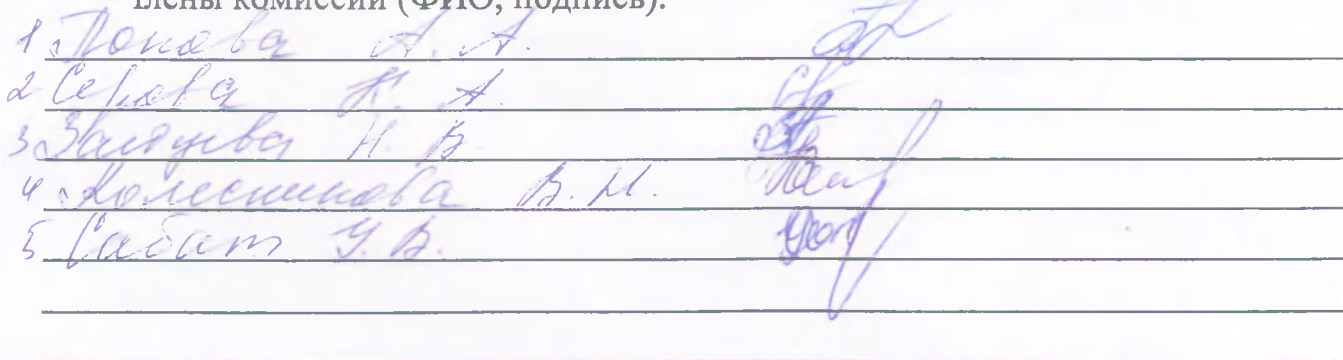 Члены комиссии (ФИО, подпись):
1 Попова А. А.
2 Серова К. А
3 Зайцева Н. В
4 Колесникова В. И.
5 Сабат У. В.